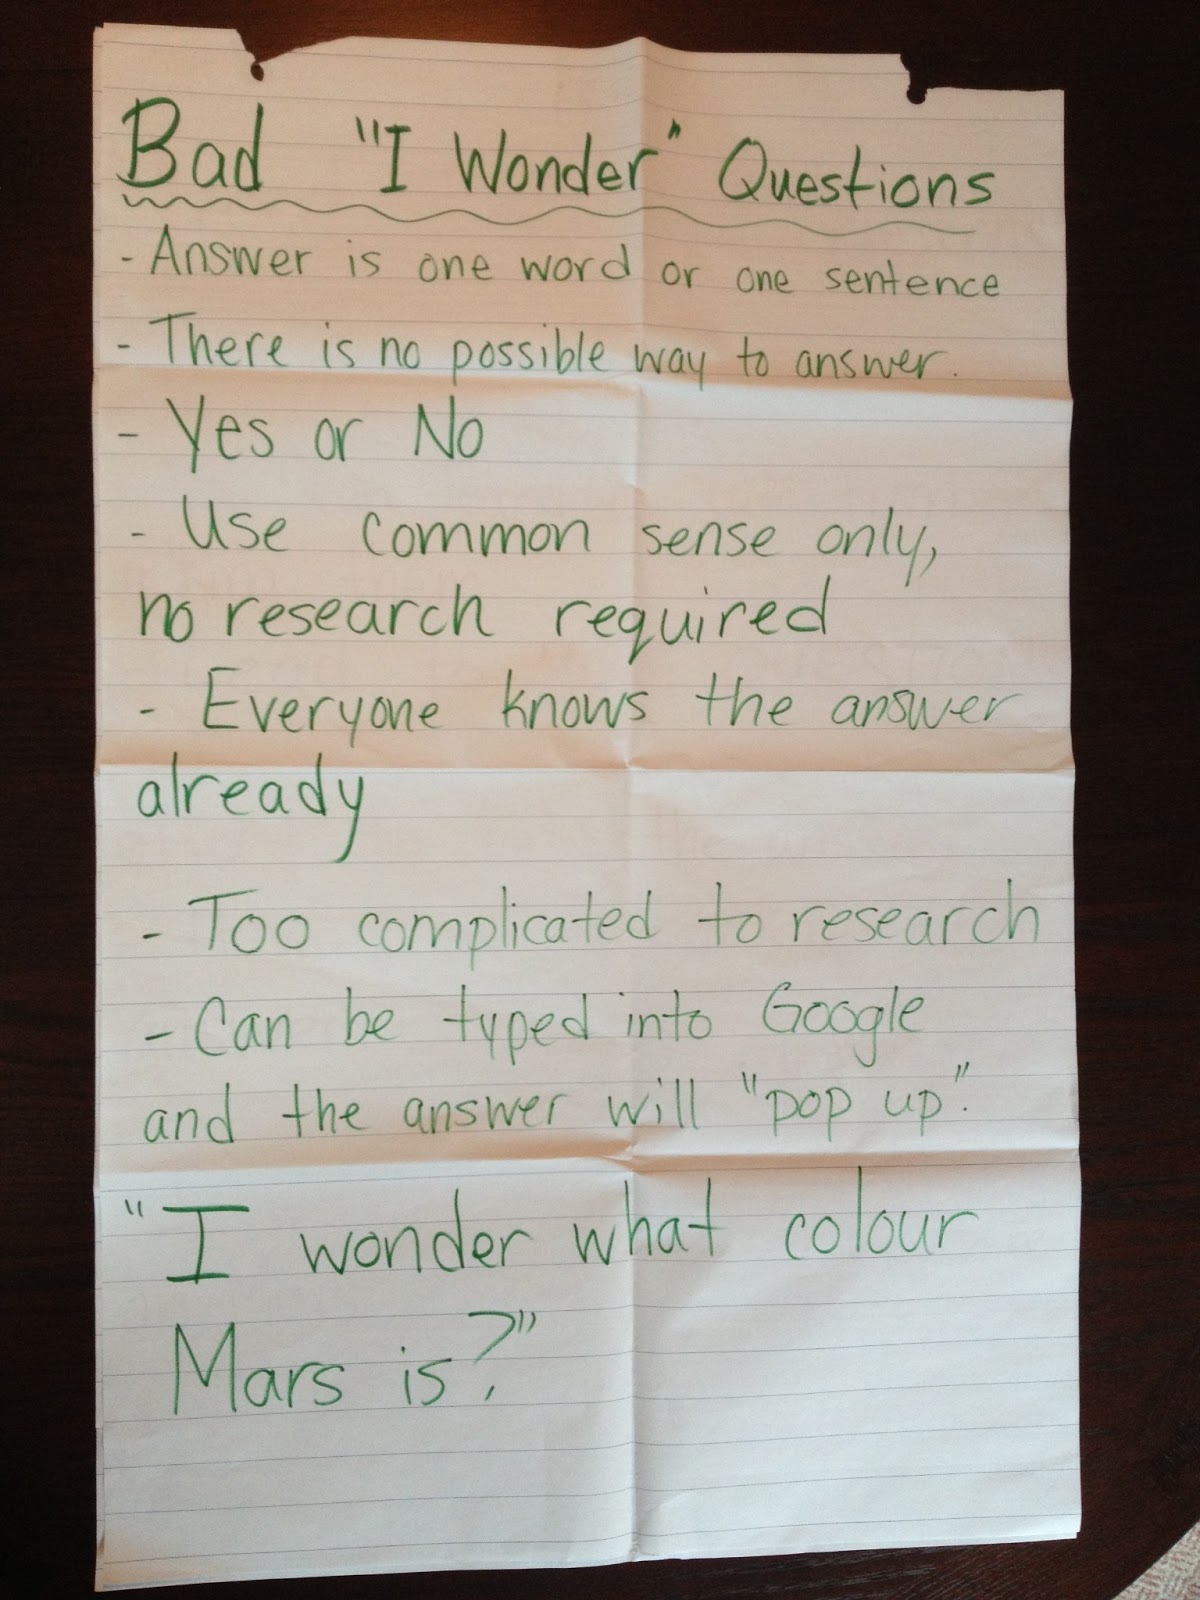 Bad "I Wonder" Questions
- Answer is one word or one sentence
- There is no possible way to answer.
- Yes or No
- Use common sense only,
no research required
- Everyone knows the answer
already
- Too complicated to research
- Can be typed into Google
and the answer will "pop up".
"I wonder what colour
Mars is?"